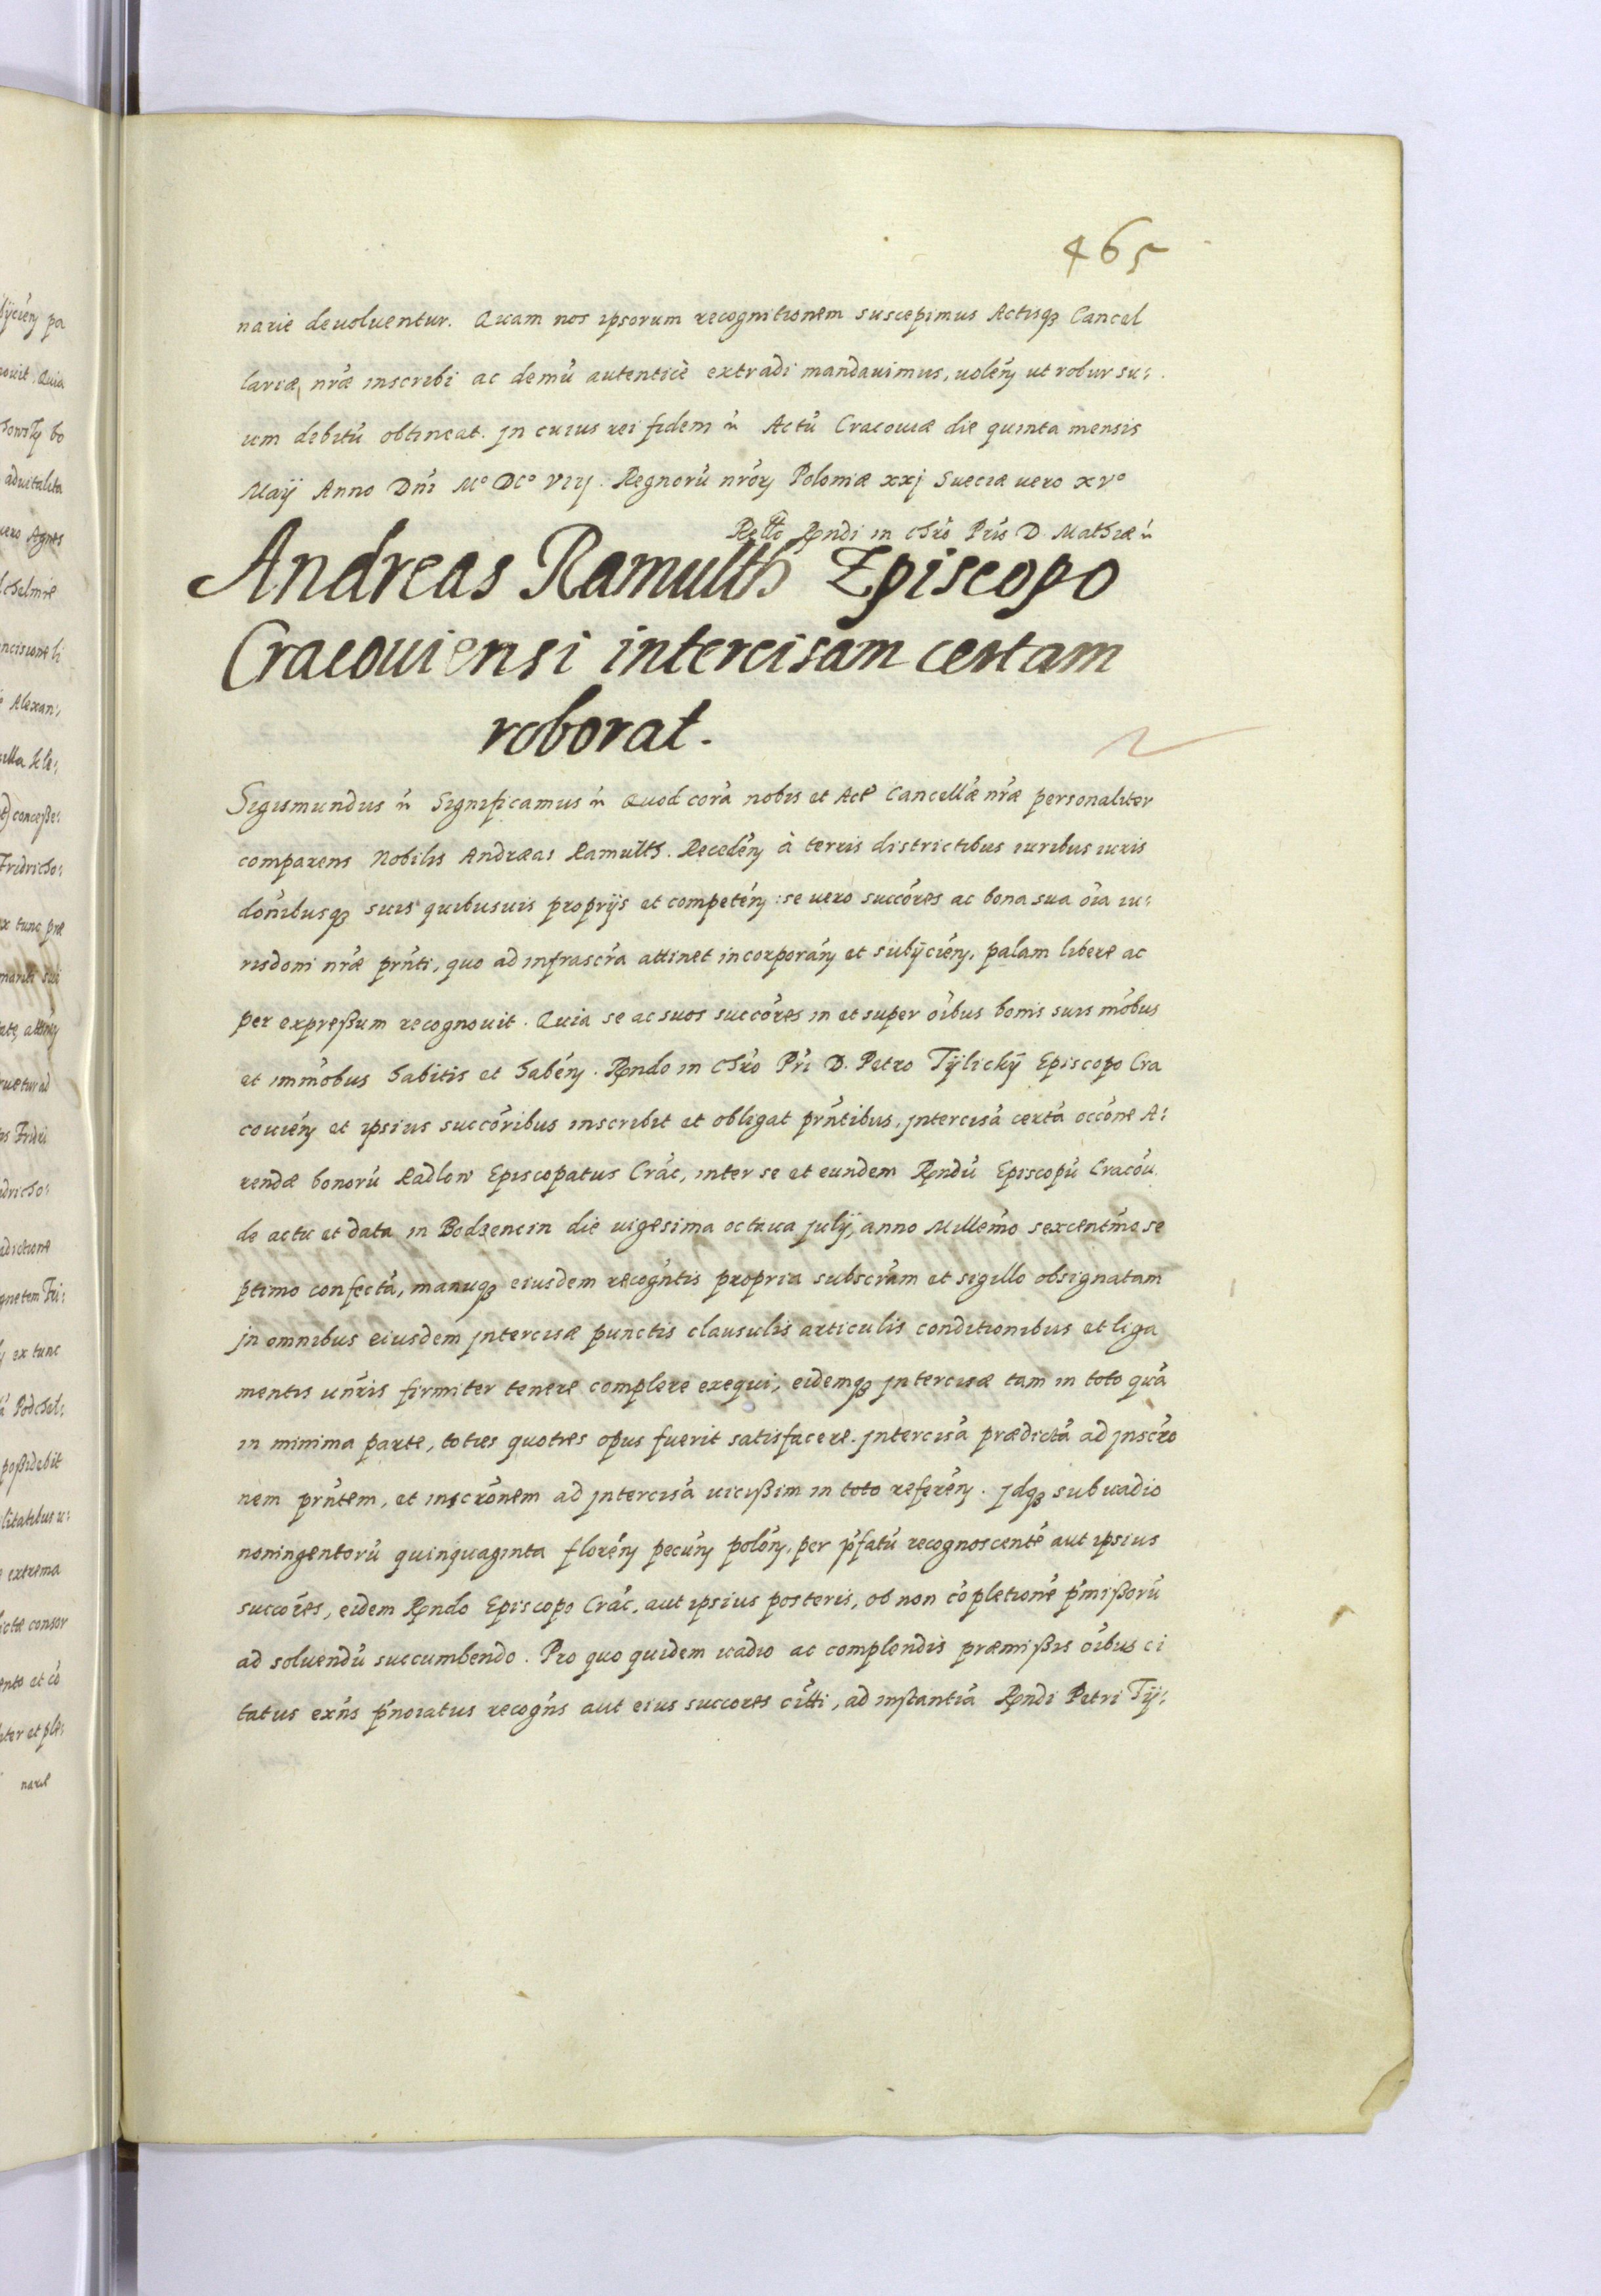 465
narie deuoluentur. Quam nos ipsorum recognitionem suscepimus Actisqʒ Cancel
lariæ nrǽ inscribi ac demŭ autenticè extradi mandauimus, uolén̨ ut robur su:
um debitŭ obtineat. jn cuius rei fidem ñ Actŭ Cracouiæ die quinta mensis
Maÿ Anno Dnı̃ M° DC° VIIj. Regnorŭ nrõꝝ Poloniæ xxj Sueciæ uero xv°
Relto Rꝫndi in Chrõ Prı̃s D. Mathiæ ñ
Andreas Ramulth Episcopo
Cracouiensi intercisam certam
roborat.
Sigismundus ñ Significamus ñ Quod corã nobis et Act̃ Cancellǽ nrǽ personaliter
comparens Nobilis Andræas Ramulth. Recedén̨ à terris districtibus iuribus iuris
dónibusqʒ suis quibusuis proprijs et competén̨: se uero succóres ac bona sua óia iu:
risdoni nrǽ prñti, quo ad infrascrã attinet incorporán̨ et subÿcién̨, palam libere ac
per expreßum recognouit. Quia se ac suos succóres in et super óibus bonis suis móbus
et immóbus habitis et habén̨. Rꝫndo in Chrõ Prı̃ D. Petro Tÿlickÿ Episcopo Cra
couién̨ et ipsius succóribus inscribit et obligat prñtibus, jntercisã certã occóne A:
rendæ bonorŭ Radlow Episcopatus Crác, inter se et eundem Rꝫndŭ Episcopŭ Cracóu.
de actu et data in Bodzencin die uigesima octaua julÿ, anno Millemo sexcentmo se
ptimo confectã, manuqʒ eiusdem recogñtis propria subscrãm et sigillo obsignatam
jn omnibus eiusdem jntercisæ punctis clausulis articulis conditionibus et liga
mentis unr̃is firmiter tenere complere exequi, eidemqʒ jntercisæ tam in toto quã
in minima parte, toties quoties opus fuerit satisfacere. jntercisã prædictã ad jnscrõ
nem prñtem, et inscrónem ad jntercisã uicißim in toto referén̨. jdqʒ sub uadio
noningentorŭ quinquaginta florén̨ pecún̨ polón̨, per p̃fatŭ recognoscentẽ aut ipsius
succóres, eidem Rꝫndo Episcopo Crác, aut ipsius posteris, ob non cõpletionẽ p̃mißorŭ
ad soluendŭ succumbendo. Pro quo quidem uadio ac complendis præmißis óibus ci
tatus exñs p̃noiatus recogñs aut eius succores citti, ad instantiã Rꝫndi Petri Tÿ: